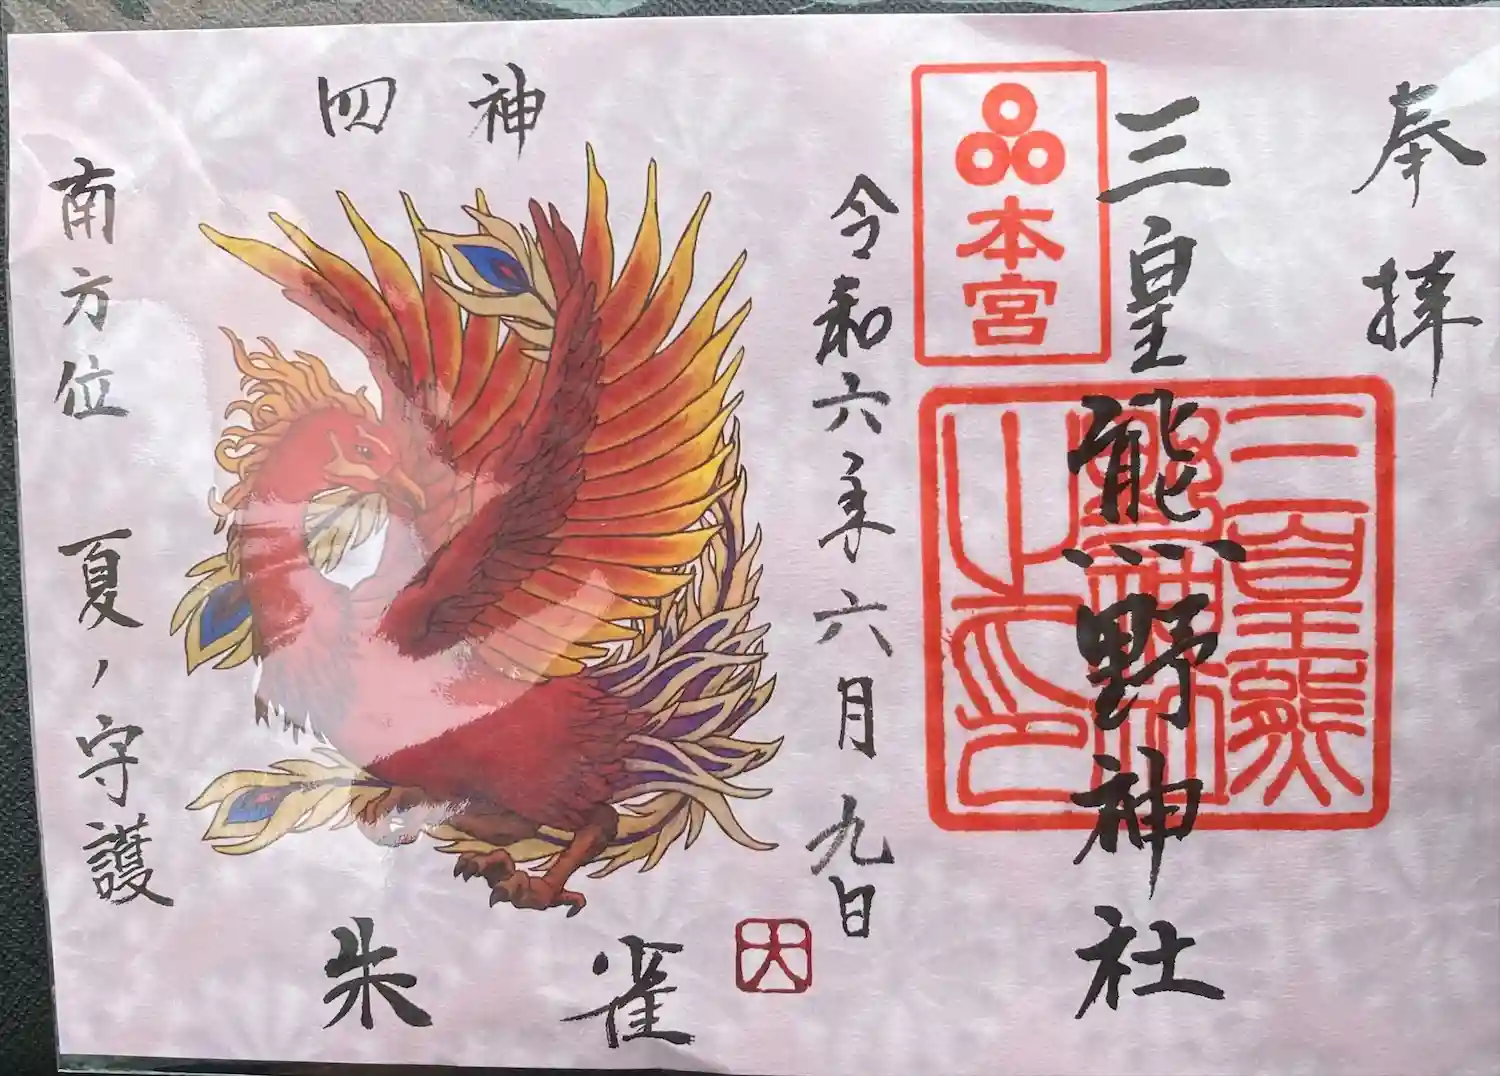 奉拝
三皇熊野神社
本宮
三皇熊
野神社
之印
令和六年六月九日
四神
朱雀
大
南方位 夏ノ守護